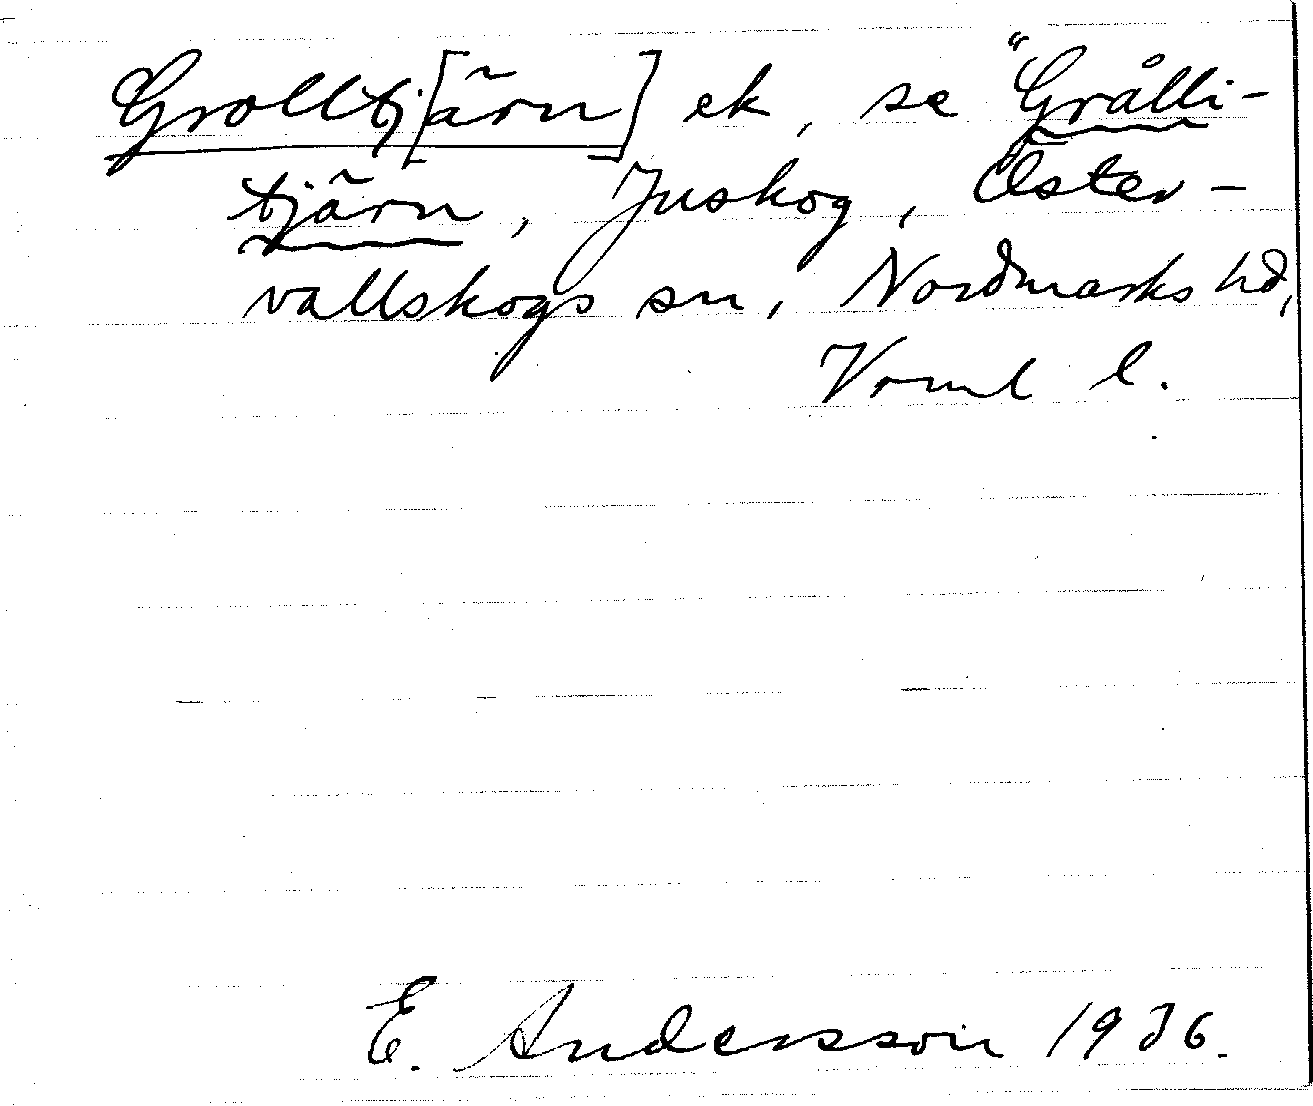 Grolltj[ärn] ek, se "Grålli-
tjärn, Juskog, Öster-
vallskogs sn, Nordmarks hd,
Vrml l.
E. Andersson 1936.